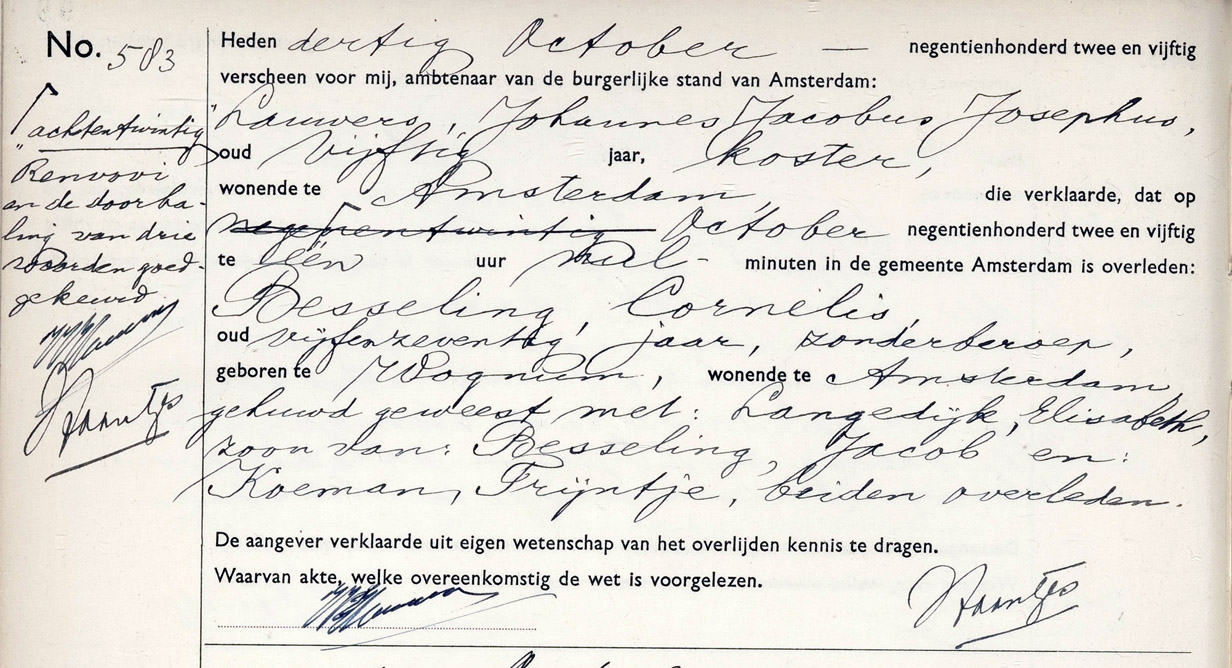 No. 583
Heden dertig October — negentienhonderd twee en vijftig
verscheen voor mij, ambtenaar van de burgerlijke stand van Amsterdam:
Lauwers, Johannes Jacobus Josephus,
oud vijftig jaar, koster,
wonende te Amsterdam, die verklaarde, dat op
negenentwintig October negentienhonderd twee en vijftig
te één uur nul - minuten in de gemeente Amsterdam is overleden:
Besseling, Cornelis,
oud vijfenzeventig jaar, zonder beroep,
geboren te Wognum, wonende te Amsterdam,
gehuwd geweest met: Langedijk, Elisabeth,
zoon van: Besseling, Jacob en:
Koeman, Trijntje, beiden overleden.
De aangever verklaarde uit eigen wetenschap van het overlijden kennis te dragen.
Waarvan akte, welke overeenkomstig de wet is voorgelezen.
"achtentwintig"
Renvooi
en de doorha-
ling van drie
woorden goed-
gekeurd